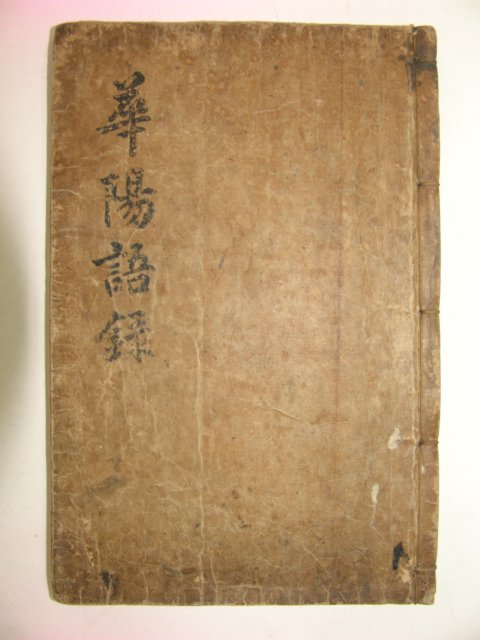 華陽語錄